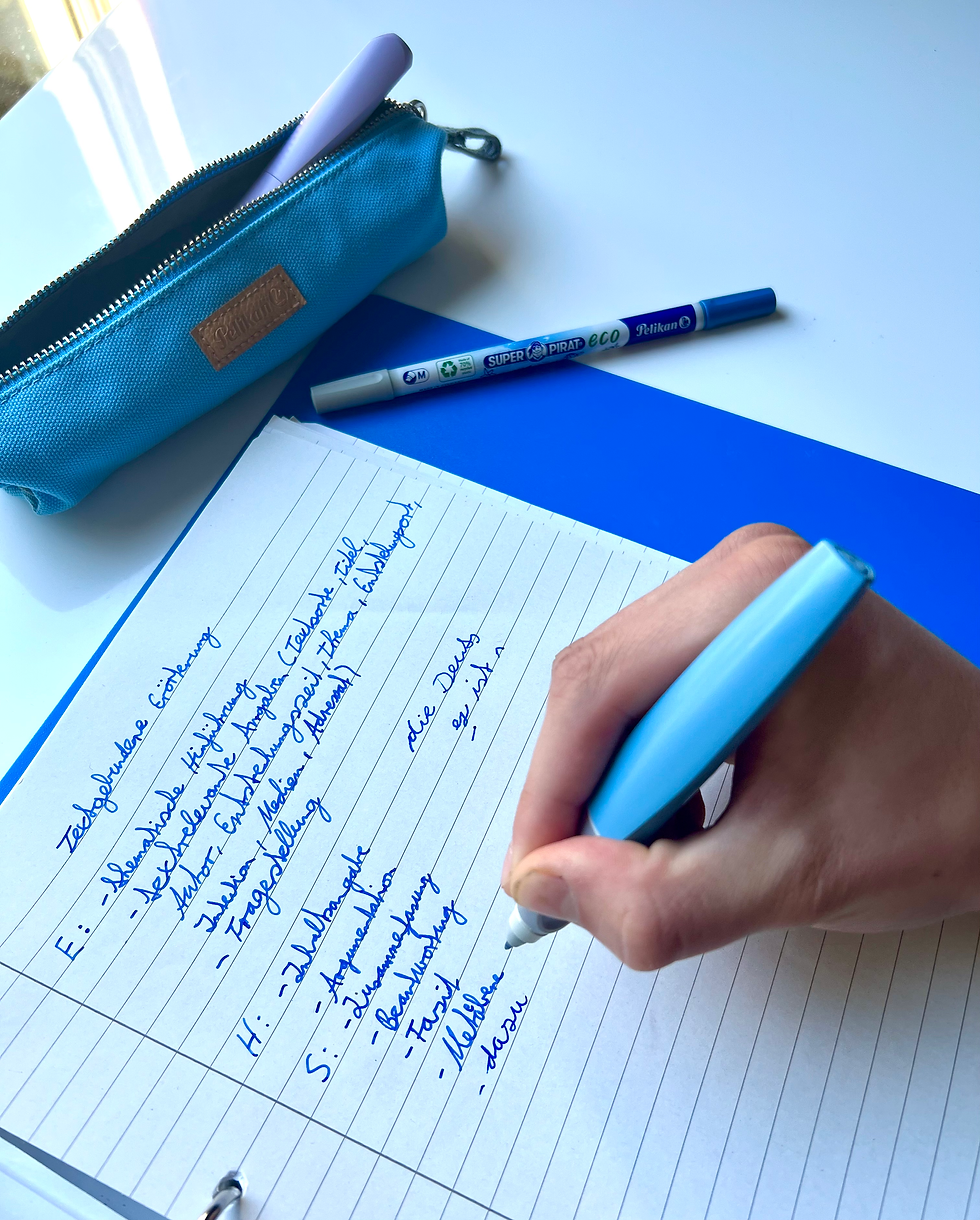 Textgebundene Erörterung
E: - thematische Hinführung
- textrelevante Angaben (Textsorte, Titel,
Autor, Entstehungszeit, Thema, Entstehungsort,
Intention, Medien, Adressat)
- Fragestellung
H: - Inhaltsangabe
- Argumentation
S: - Zusammenfassung
- Beantwortung
- Fazit
- Metaebene
- dazu
die
es ist
Pelikan
M
SUPER PIRAT eco Pelikan